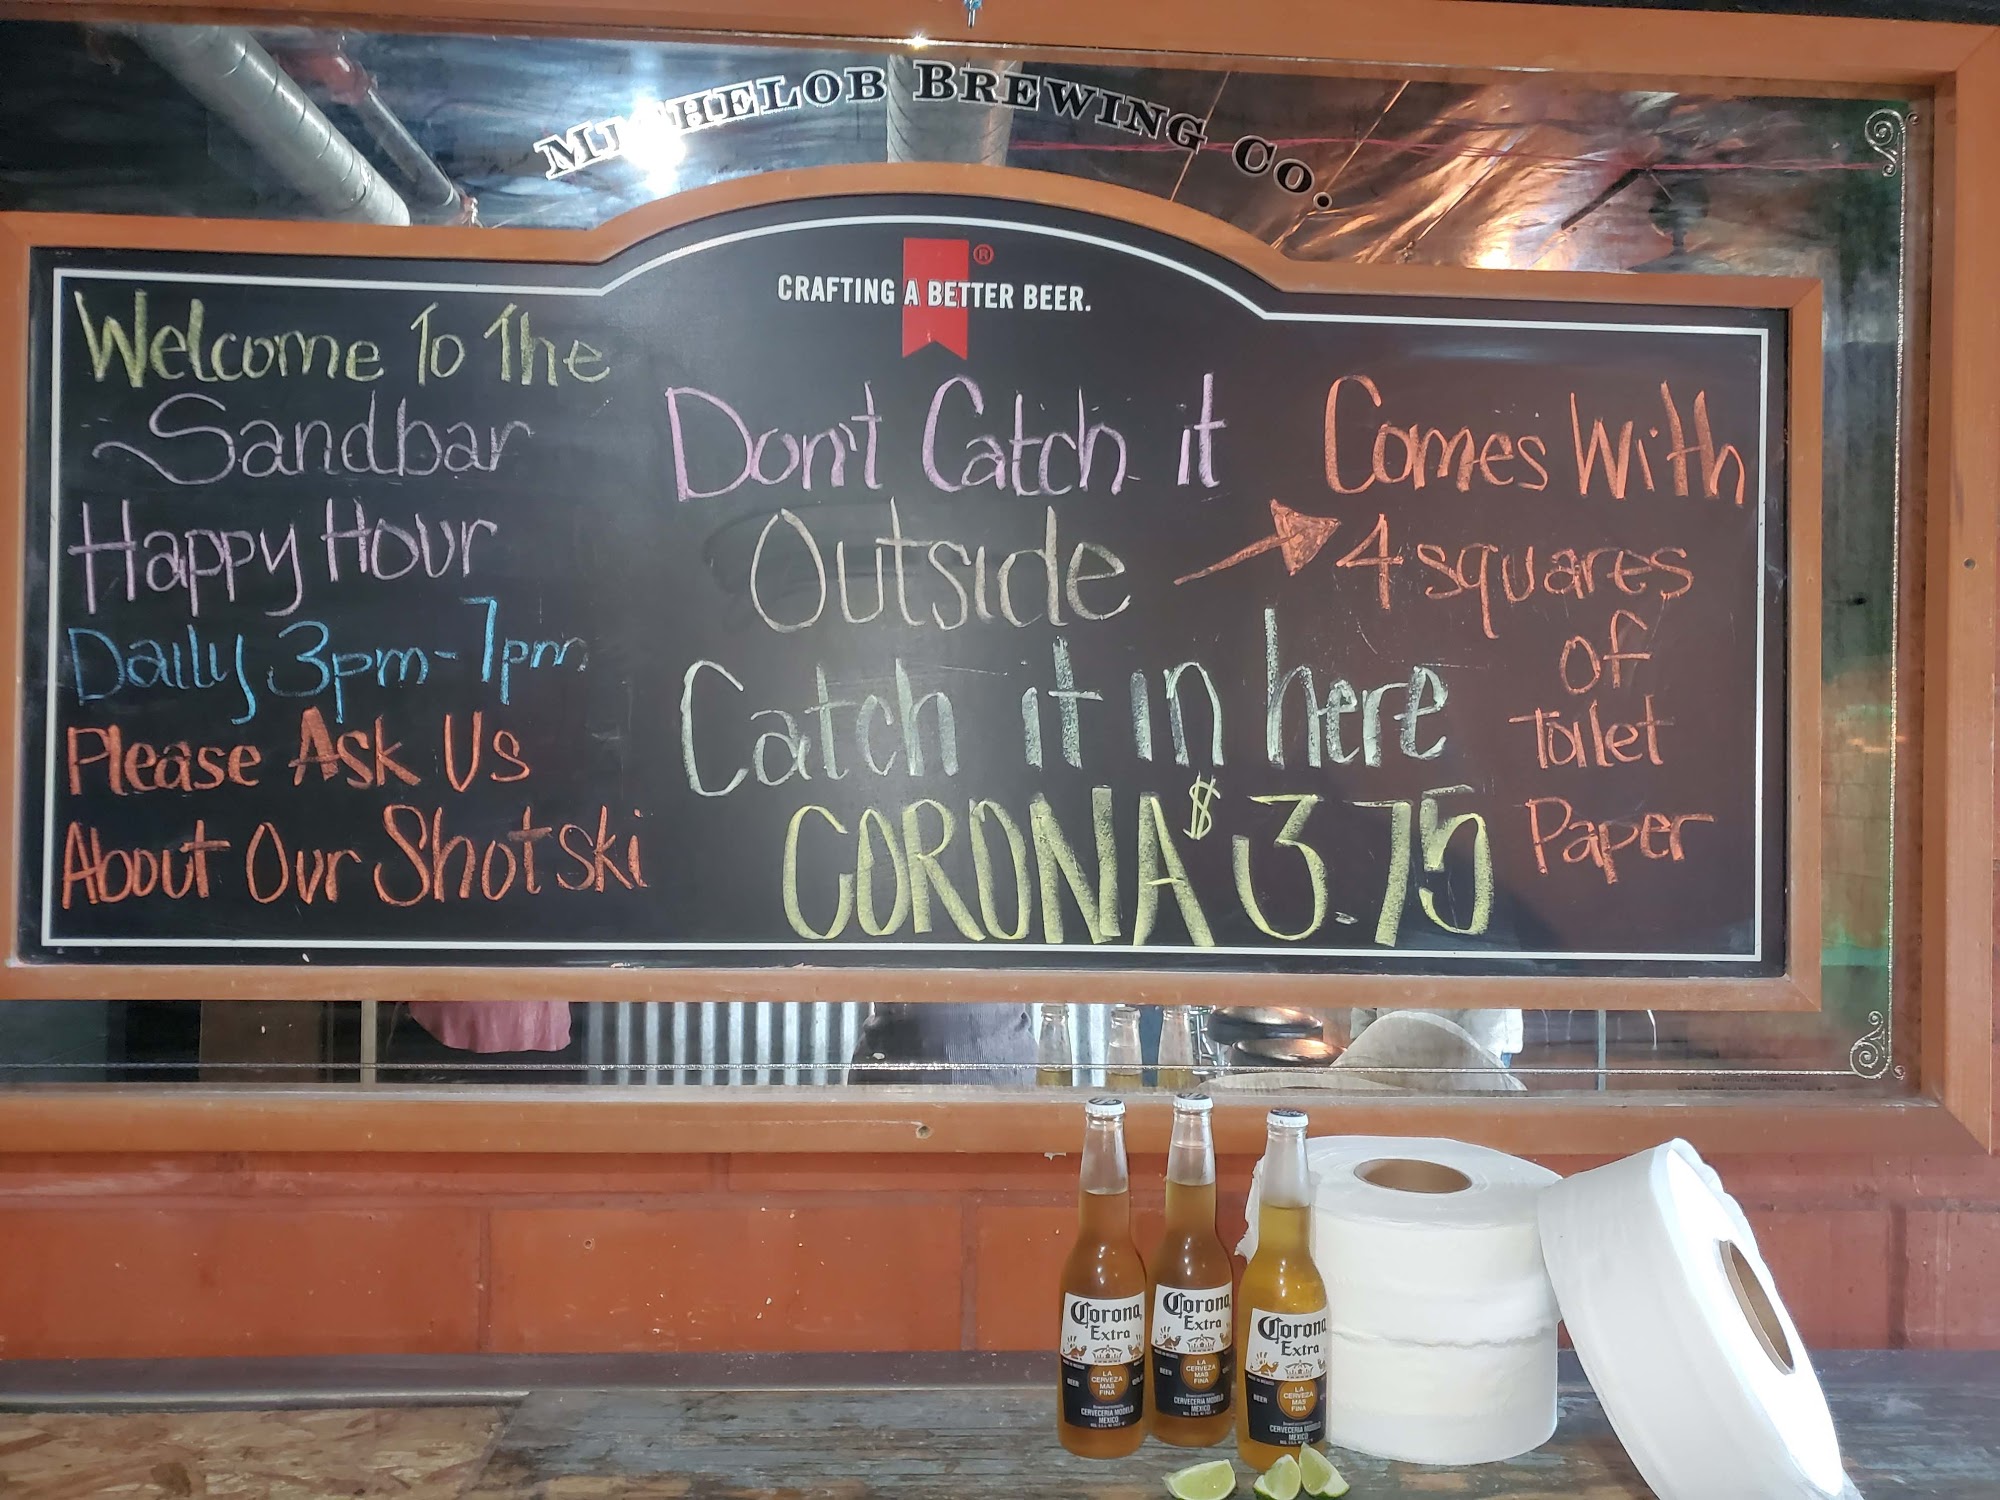 MICHELOB BREWING CO.
CRAFTING A BETTER BEER.
®
Welcome To The
Sandbar
Happy Hour
Daily 3pm-7pm
Please Ask Us
About Our Shotski
Don't Catch it
Outside
Catch it in here
CORONA $3.75
Comes With
4 squares
of
Toilet
Paper
Corona
Extra
BEER
LA
CERVEZA
MAS
FINA
CERVECERIA MODELO
MEXICO
Corona
Extra
BEER
LA
CERVEZA
MAS
FINA
CERVECERIA MODELO
MEXICO
Corona
Extra
BEER
LA
CERVEZA
MAS
FINA
CERVECERIA MODELO
MEXICO